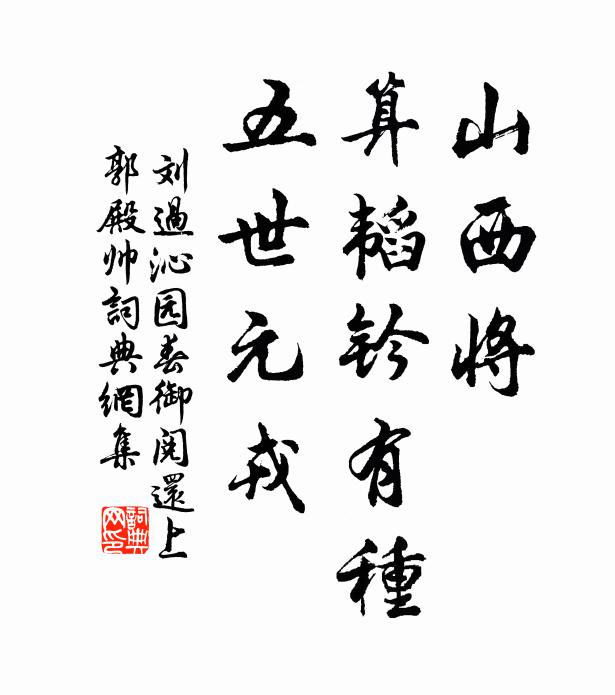 山西将
算韬钤有種
五世元戎
刘過沁园春御阅還上
郭殿帅詞典網集
詞典网印